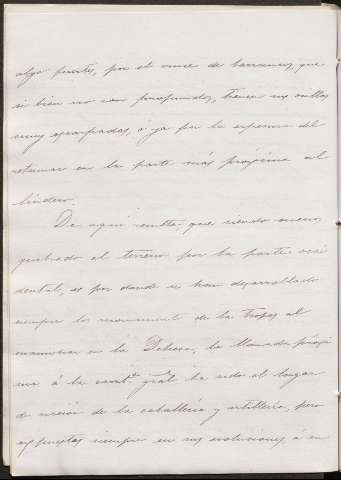 algo fuertes, por el cruce de barrancos, que
si bien no son profundos, tienen sus orillas
muy escarpadas, ó ya por la espesura del
retamar en la parte más próxima al
lindero.
De aquí resulta, que siendo menos
quebrado el terreno por la parte occi
dental, es por donde se han desarrollado
siempre los movimientos de las tropas al
maniobrar en la Dehesa, la llamada próxi
ma á la carrt.ª gral ha sido el lugar
de acción de la caballería y artillería, pero
expuestas siempre en sus evoluciones, á un